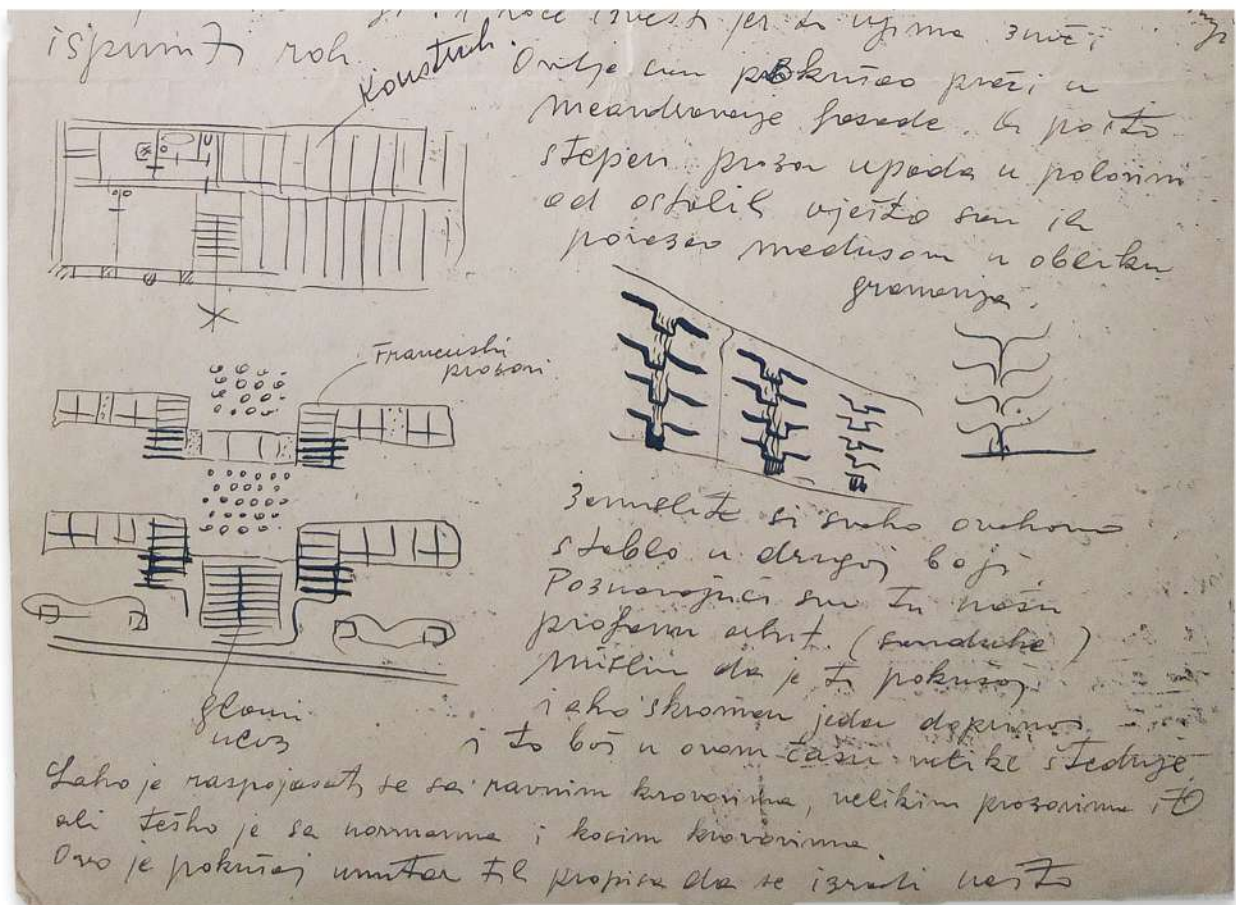 i hoće izvesti jer to njima znači
ispuniti rok.
Konstruk.
Ovdje sam pokušao preći u
meandriranje fasade. Ć pošto
stepen prozor upada u polovini
od ostalih vješto sam ih
povezao međusom u obliku
gromanja.
Francuski
prozori
Zamislite si svako ovakovo
stablo u drugoj boji.
Poznavajući svu tu našu
profanu arhit. (sanduke)
Mislim da je ti pokušaj
iako skroman jedan doprinos
i to baš u ovom času velike štednje.
Glavni
ulaz
Lako je raspojasati se sa ravnim krovovima, velikim prozorima itd
ali teško je sa normama i kosim krovovima.
Ovo je pokušaj unutar tih propisa da se izradi nešto